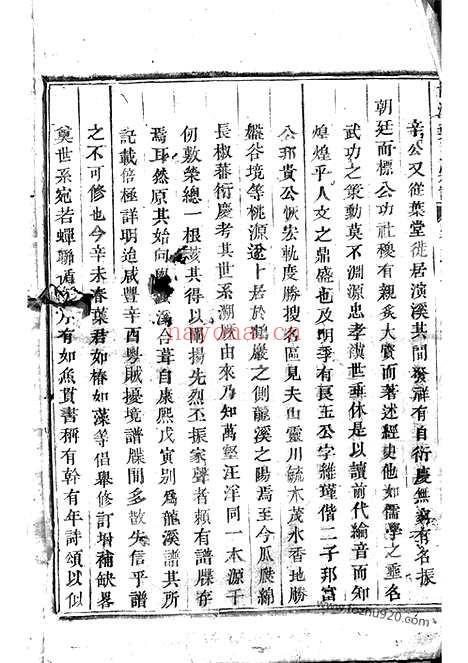 辛公又從葉堂徙居演溪其間發祥有自衍慶無窮有名振
朝廷而標公功社稷有親炙大賓而著述經史他如儒學之垂名
武功之策勳莫不淵源忠孝儀世垂休是以讀前代綸音而知
煌煌乎人文之鼎盛也及明季有長壬公字維瑾偕二子邦富
公邦貴公恢宏軌度勝搜名區見夫山靈川毓木茂水香地勝
盤谷境等桃源遂卜居於鶴巖之側龍溪之陽焉至今瓜瓞綿
長椒蕃衍慶考其世系溯厥由來乃知萬壑汪洋同一本源千
仞敷榮總一根荄其得以顯揚先烈丕振家聲者賴有譜牒存
焉耳然原其始向與演溪合葺自康熙戊寅別為龍溪譜其所
記載倍極詳明迨咸豐辛酉粵賊擾境譜牒間多散失信乎譜
之不可修也今辛未春葉君如椿如藻等倡舉修訂增補缺畧
奠世系宛若蟬聯遁方有如魚貫書稱有幹有年詩頌以似
nayona.cn
www.fozhu920.com